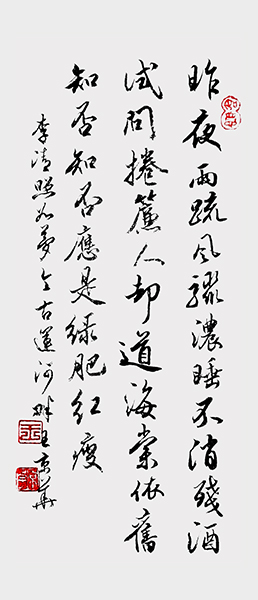 昨夜雨疏风骤濃睡不消殘酒
试問捲簾人却道海棠依舊
知否知否應是绿肥红瘦
李清照如夢令古運河畔王京華